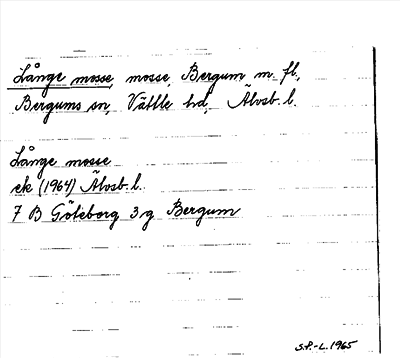 Långe mosse, mosse, Bergum m. fl.,
Bergums sn, Vättle hd, Älvsb. l.
Långe mosse
ek (1964) Älvsb. l.
7 B Göteborg 3 g Bergum
S.P.-L. 1965